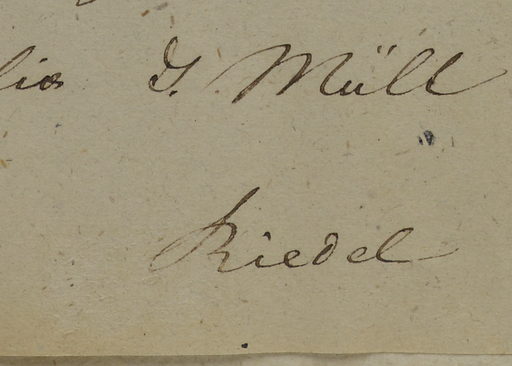 lia J. Müll
Riedel